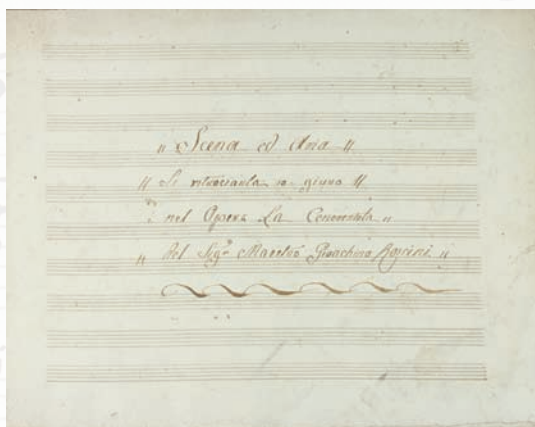 " Scena ed Aria "
" Si ritrovarla io giuro "
" nel Opera La Cenerentola "
" Del Sigr Maestro Gioachino Rossini "